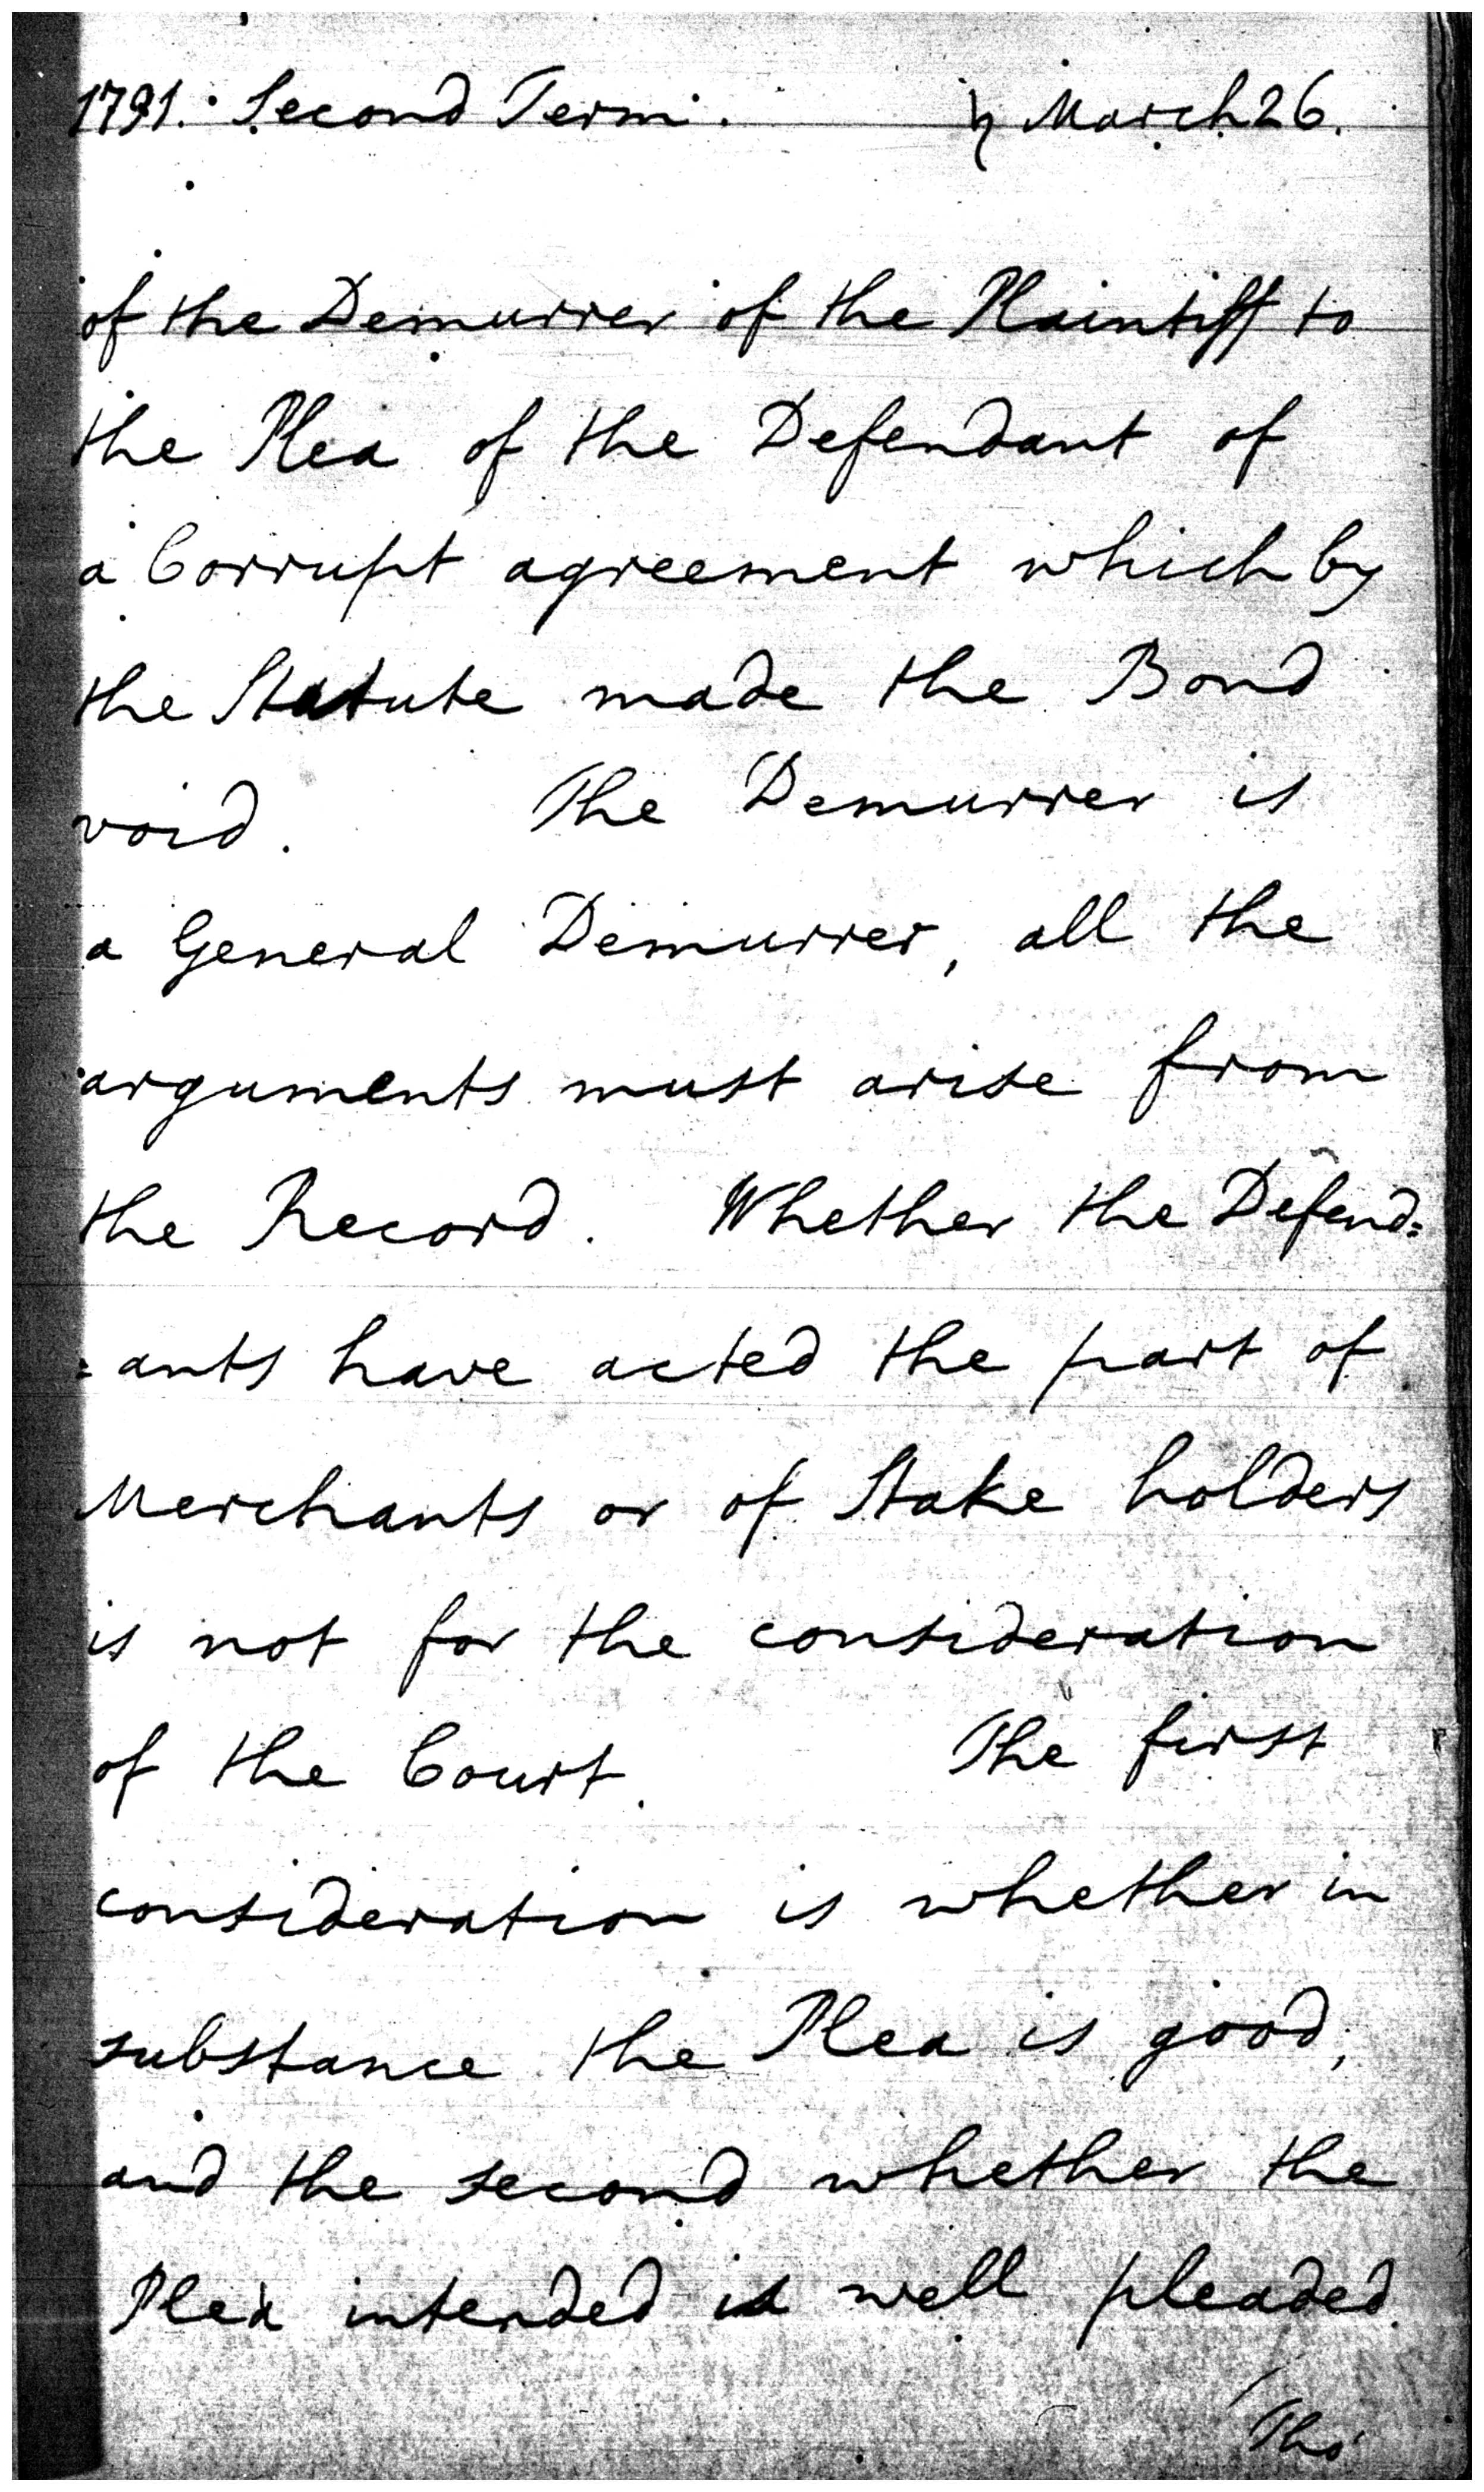 1791. Second Term. ♄ March 26.
of the Demurrer of the Plaintiff to
the Plea of the Defendant of
a Corrupt agreement which by
the Statute made the Bond
void. The Demurrer is
a General Demurrer, all the
arguments must arise from
the Record. Whether the Defend=
=ants have acted the part of
Merchants or of Stake holders
is not for the consideration
of the Court. The first
consideration is whether in
substance the Plea is good,
and the second whether the
Plea intended is well pleaded.
Tho'